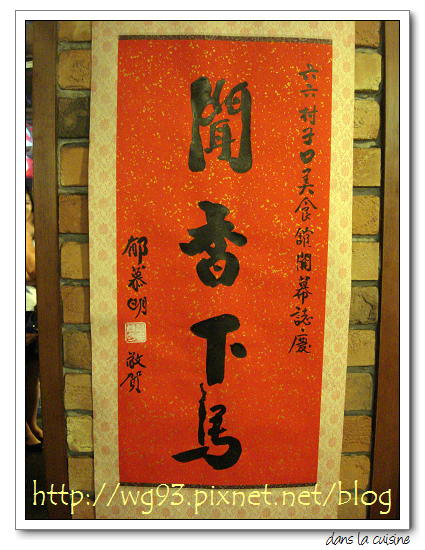 六六村子口美食館開幕誌慶
聞香下馬
郁慕明
敬賀
http://wg93.pixnet.net/blog
dans la cuisine